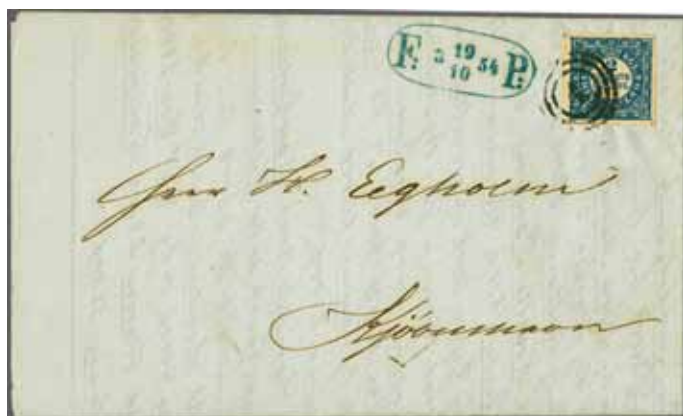 F: 3 19/10 54 P:
2
Herr H. Eegholm
Kjöbenhavn